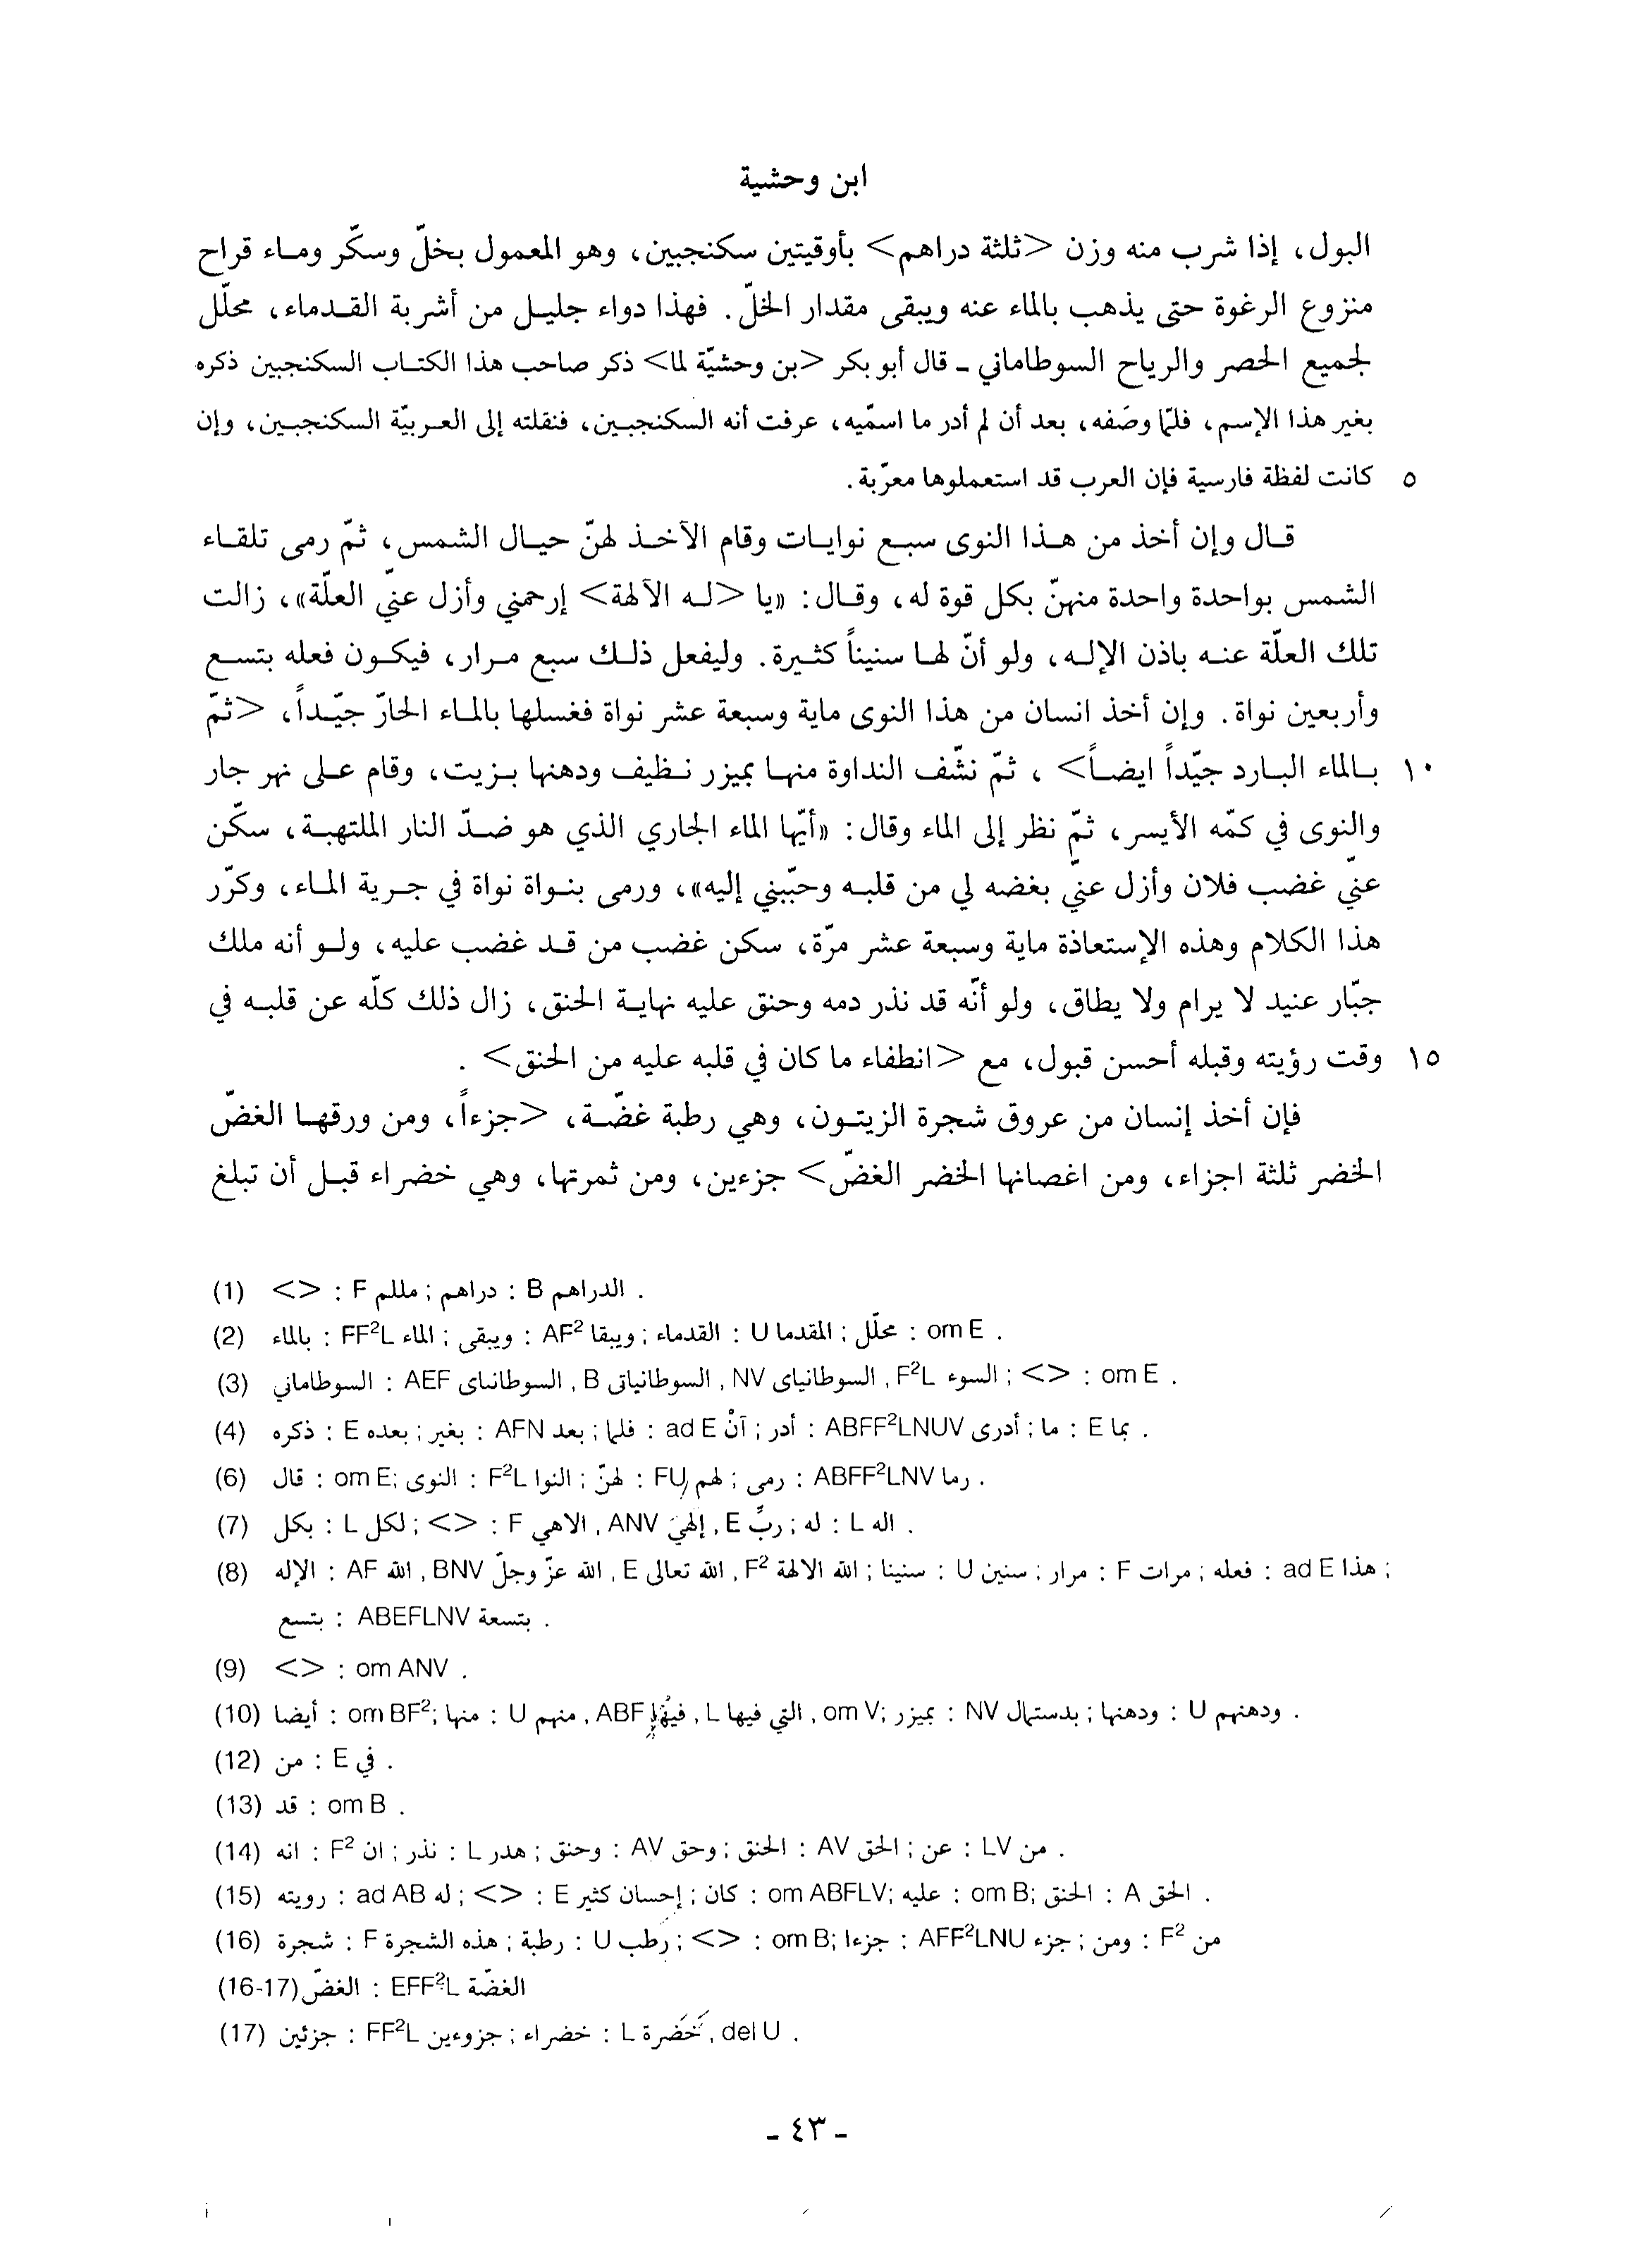 ابن وحشية
البول، إذا شرب منه وزن <ثلثة دراهم> بأوقيتين سكنجبين، وهو المعمول بخلّ وسكّر وماء قراح
منزوع الرغوة حتى يذهب بالماء عنه ويبقى مقدار الخلّ. فهذا دواء جليل من أشربة القدماء، محلّل
لجميع الحصر والرياح السوطاماني ـ قال أبو بكر <بن وحشيّة لما> ذكر صاحب هذا الكتاب السكنجبين ذكره
بغير هذا الإسم، فلمّا وصَفه، بعد أن لم أدر ما اسمّيه، عرفت أنه السكنجبين، فنقلته إلى العربيّة السكنجبين، وإن
٥ كانت لفظة فارسية فإن العرب قد استعملوها معرّبة.
قال وإن أخذ من هذا النوى سبع نوايات وقام الآخذ لهنّ حيال الشمس، ثمّ رمى تلقاء
الشمس بواحدة واحدة منهنّ بكل قوة له، وقال: «يا <له الآلهة> إرحمني وأزل عنّي العلّة»، زالت
تلك العلّة عنه باذن الإله، ولو أنّ لها سنيناً كثيرة. وليفعل ذلك سبع مرار، فيكون فعله بتسع
وأربعين نواة. وإن أخذ انسان من هذا النوى ماية وسبعة عشر نواة فغسلها بالماء الحارّ جيّداً، <ثمّ
١٠ بالماء البارد جيّداً ايضاً> ، ثمّ نشّف النداوة منها بميزر نظيف ودهنها بزيت، وقام على نهر جار
والنوى في كمّه الأيسر، ثمّ نظر إلى الماء وقال: «أيّها الماء الجاري الذي هو ضدّ النار الملتهبة، سكّن
عنّي غضب فلان وأزل عنّي بغضه لي من قلبه وحبّبني إليه»، ورمى بنواة نواة في جرية الماء، وكرّر
هذا الكلام وهذه الإستعاذة ماية وسبعة عشر مرّة، سكن غضب من قد غضب عليه، ولو أنه ملك
جبّار عنيد لا يرام ولا يطاق، ولو أنّه قد نذر دمه وحنق عليه نهاية الحنق، زال ذلك كلّه عن قلبه في
١٥ وقت رؤيته وقبله أحسن قبول، مع <انطفاء ما كان في قلبه عليه من الحنق> .
فإن أخذ إنسان من عروق شجرة الزيتون، وهي رطبة غضّة، <جزءاً، ومن ورقها الغضّ
الخضر ثلثة اجزاء، ومن اغصانها الخضر الغضّ> جزءين، ومن ثمرتها، وهي خضراء قبل أن تبلغ
(1) <> : F مللم ; دراهم : B الدراهم .
(2) بالماء : FF²L الماء ; ويبقى : AF² ويبقا ; القدماء : U المقدما ; محلّل : om E .
(3) السوطاماني : AEF السوطاناى , B السوطانياتى , NV السوطانياى , F²L السوء ; <> : om E .
(4) ذكره : E بعده ; بغير : AFN بعد ; فلما : ad E آنْ ; أدر : ABFF²LNUV أدرى ; ما : E بما .
(6) قال : om E; النوى : F²L النوا ; لهنّ : FU لهم ; رمى : ABFF²LNV رما .
(7) بكل : L لكل ; <> : F الاهي , ANV إلهيَ , E ربِّ ; له : L اله .
(8) الإله : AF الله , BNV الله عزّ وجلّ , E الله تعالى , F² الله الالهة ; سنينا : U سنين ; مرار : F مرات ; فعله : ad E هذا ;
بتسع : ABEFLNV بتسعة .
(9) <> : om ANV .
(10) أيضا : om BF²; منها : U منهم , ABF , L التي فيها , om V; بميزر : NV بدستمال ; ودهنها : U ودهنهم .
(12) من : E في .
(13) قد : om B .
(14) انه : F² ان ; نذر : L هدر ; وحنق : AV وحق ; الحنق : AV الحق ; عن : LV من .
(15) رويته : ad AB له ; <> : E إحسان كثير ; كان : om ABFLV; عليه : om B; الحنق : A الحق .
(16) شجرة : F هذه الشجرة ; رطبة : U رطب ; <> : om B; جزءا : AFF²LNU جزء ; ومن : F² من
(16-17) الغضّ : EFF²L الغضّة
(17) جزئين : FF²L جزوءين ; خضراء : L نَخَضرة , del U .
ـ ٤٣ ـ